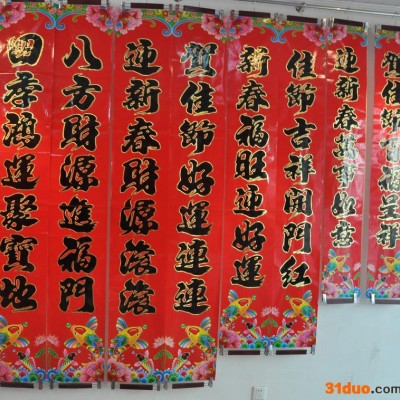 賀佳節百福呈祥
迎新春萬事如意
佳節吉祥開門紅
新春福旺迎好運
賀佳節好運連連
迎新春財源滾滾
八方財源進福門
四季鴻運聚寶地
31duo.com